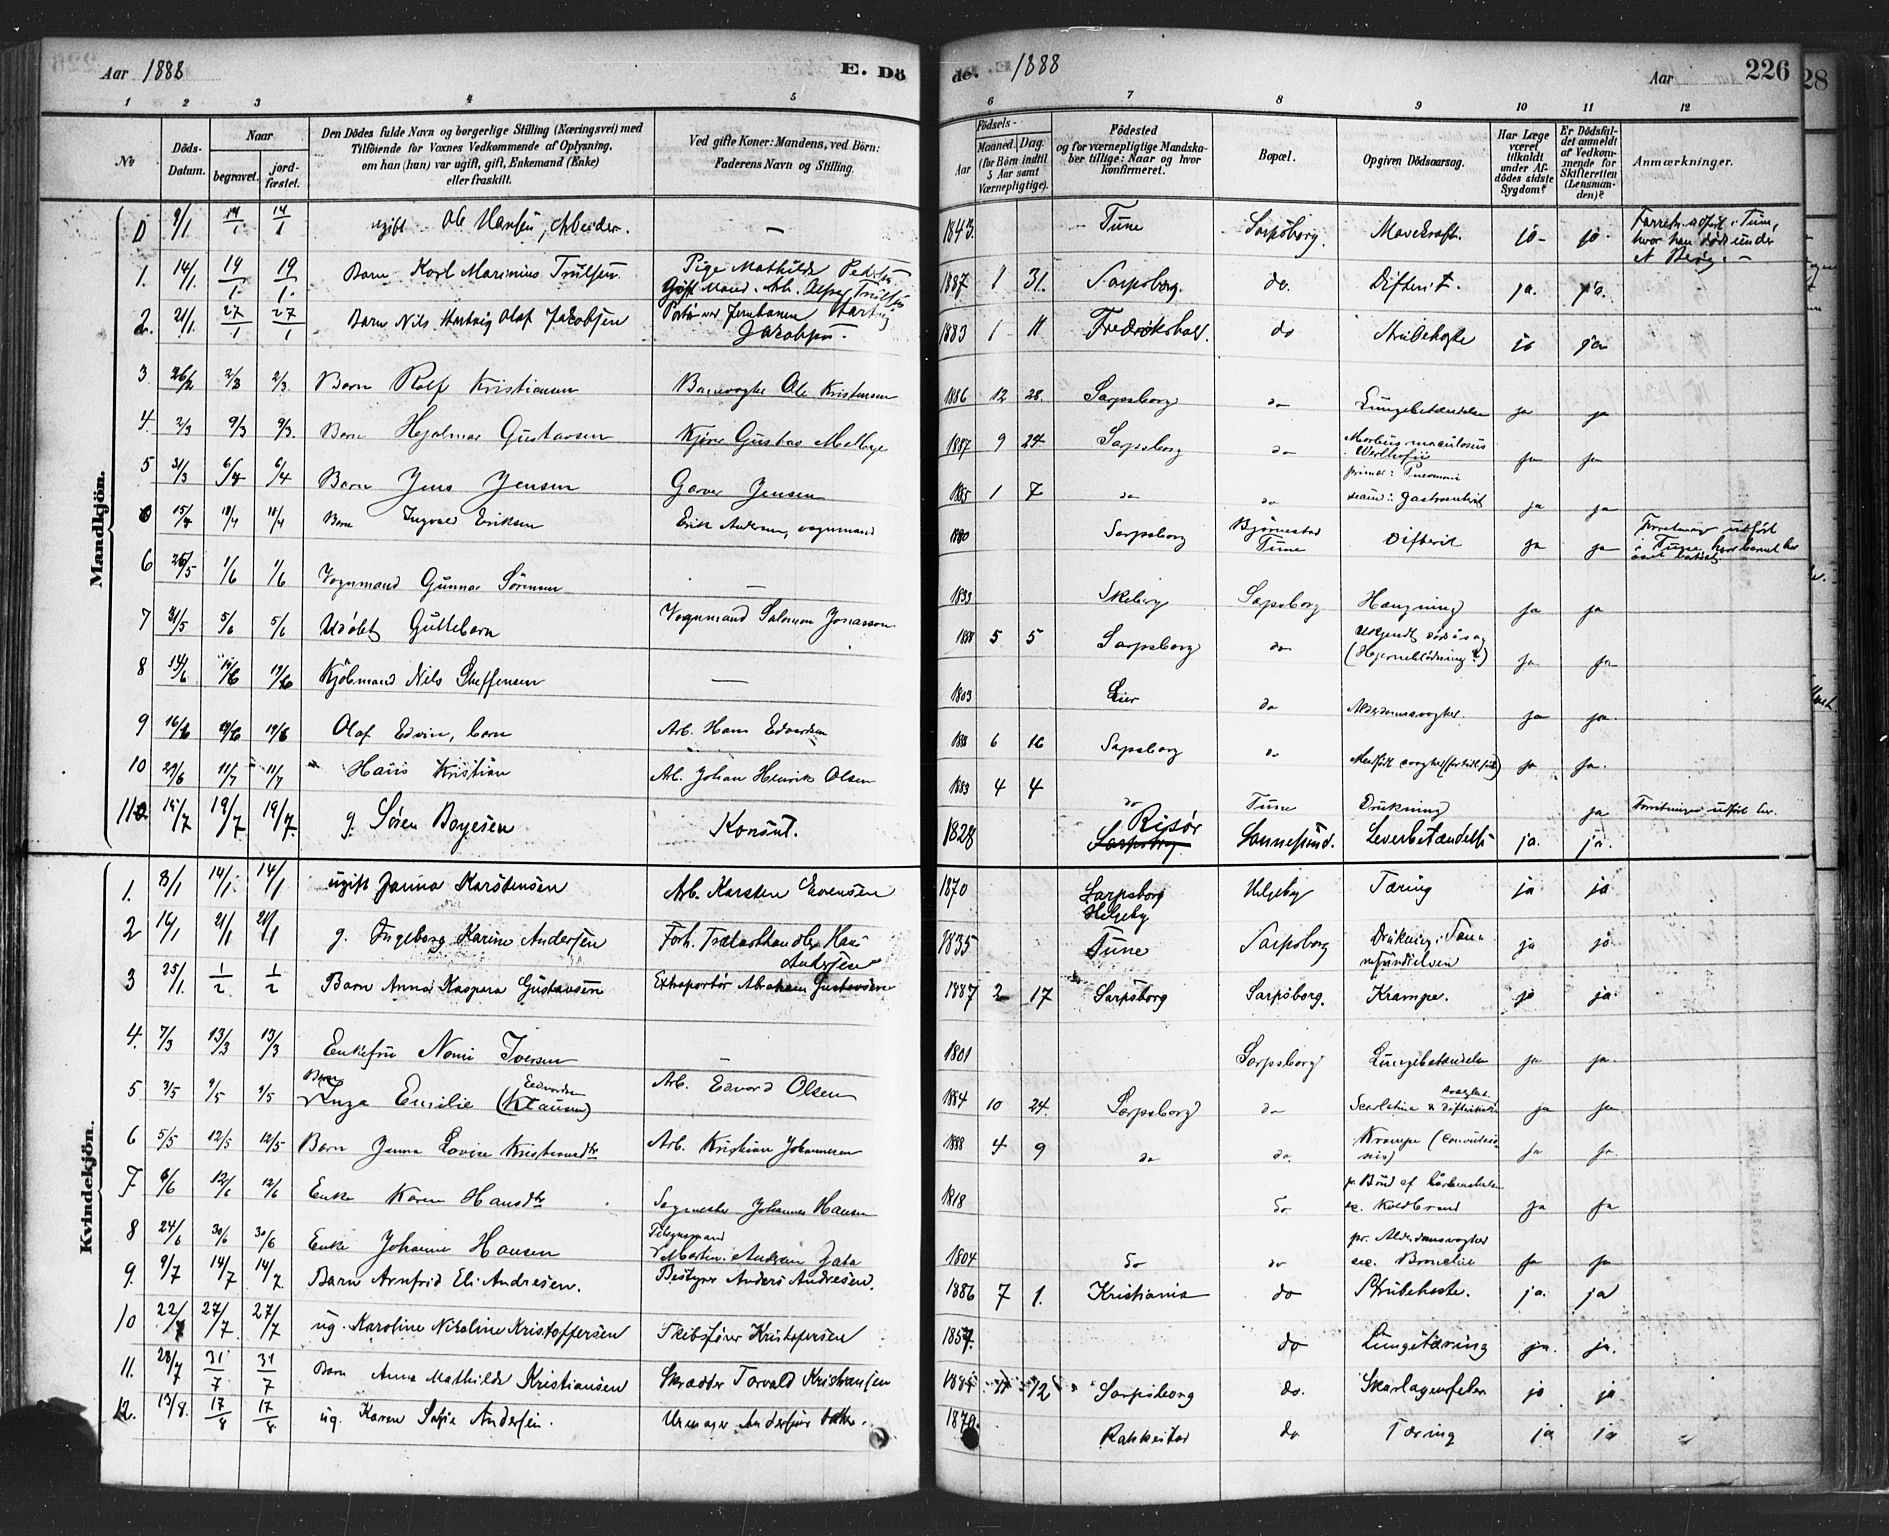 Aar 1888 E. Dö
de. 1888 Aar 226
1 2 3 4 5
6 7 8 9 10 11 12
No
Döds-Datum.
Naar begravet. jordfæstet.
Den Dödes fulde Navn og borgerlige Stilling (Næringsvei) med
Tilföiende for Voxnes Vedkommende af Oplysning,
om han (hun) var ugift, gift, Enkemand (Enke)
eller fraskilt.
Ved gifte Koner: Mandens, ved Börn:
Faderens Navn og Stilling.
Födsels-
Aar Maaned. Dag.
(for Börn indtil 5 Aar samt Værnepligtige).
Födested
og for værnepligtige Mandska-
ber tillige: Naar og hvor
konfirmeret.
Bopæl.
Opgiven Dödsaarsag.
Har Læge været tilkaldt under Afdödes sidste Sygdom?
Er Dödsfaldet anmeldt af Vedkommende for Skifteretten (Lensmanden)?
Anmærkninger.
Mandkjön.
0 9/1 14/1 14/1 ugift Ole Hansen, Arbeider. — 1843. Tune Sarpsborg. ja ja
1. 14/1 19/1. 19/1. Barn Karl Marinius Trulsen Pige Mathilde
Gift Mand. Arb. 1887 1 31. Sarpsborg. do. Difterit. ja. ja.
2. 21/1 27/1 27/1 Barn Nils Hartvig Olaf Jakobsen Jernbanen Hartvig
Jakobsen. 1883 1 11 Fredrikshald. do Strubehoste ja ja
3 26/2 2/3 2/3 Barn Rolf Kristiansen Banevogter Ole Kristensen 1886 12 28. Sarpsborg do Lungebetændelse ja ja
4. 2/3 9/3 9/3. Barn Hjalmar Gustavsen Gustav Melbye 1887 9 24 Sarpsborg do Morbus maculosus
Werlhofii ja ja
5 31/3 6/4 6/4 Barn Jens Jensen Garver Jensen 1 7 do do
primær: Pneumoni
gastroenterit ja ja
15/4 18/4 18/4 Barn Ingvald Eriksen Erik Andersen, vognmand 1880 Sarpsborg Bjørnestad
Tune Difterit ja ja
6 26/5 1/6 1/6 Vognmand Gunnar Sörensen — 1833 Skeberg Sarpsborg Hængning ja ja
7 31/5 5/6 5/6 Udöbt Guttebarn Vognmand Salomon Jonasson 1888 5 5 Sarpsborg do
(Hjerneblödning?) ja ja
8 14/6 19/6 19/6 Kjöbmand Nils Steffensen — 1803 Lier do Alderdomssvaghed. ja ja.
9 16/6 19/6 19/6 Olaf Edvin, barn Arb. Hans Edvardsen 1888 6 16 Sarpsborg do Medfödt svaghed ja ja.
10 11/7 11/7 Hans Kristian Arb. Johan Henrik Olsen 1883 4 4 do Tune Drukning ja
11. 15/7 19/7 19/7 g. Sören Boyesen Konsul. 1828 Risør
Sarpsborg. Sannesund. Leverbetændelse ja. ja.
Kvindekjön.
1. 8/1 14/1. 14/1 ugift Janna Karstensen Arb. Karsten Evensen 1870 Sarpsborg
Helgeby Helgeby Tæring ja ja
2 16/1 21/1 21/1 g. Ingeborg Karine Andersen Forh. Trælasthandler Hans
Andersen 1835 Tune Sarpsborg Drukning i San-
nesundselven ja ja
3 25/1. 1/2 1/2 Barn Anna Kaspara Gustavsen Expeditör Abraham Gustavsen 1887 2 17 Sarpsborg Sarpsborg. Krampe. ja ja.
4. 7/3 13/3 13/3 Enkefru Nomi Iversen — 1801 Sarpsborg Lungebetændelse ja ja.
5 3/5 9/5 9/5 Barn
Inga Emilie (Klausen) Edvardsen Arb. Edvard Olsen 1884 10 24. Sarpsborg do Scarlatina & ja ja
6 5/5 12/5 12/5 Barn Janna Lovise Kristiansdtr Arb. Kristian Johannesen 1888 4 9 do do. Krampe (convulsio-
nes) ja ja
7 6/6 12/6 12/6 Enke Karen Hansdtr Sagmester Johannes Hansen 1818 do
sec. Koldbrand ja ja
8 24/6 30/6 30/6 Enke Johanne Hansen
Martin Andersen 1804 do do pr. Alderdomssvaghed
sec. Bronchit ja ja
9. 9/7 14/7 14/7. Barn Arnfrid Eli Andresen. Bestyrer Anders Andresen. 1886 7 1. Kristiania do Strubehoste. ja. ja
10 22/7 27/7 27/7 ug. Karoline Nicoline Kristoffersen Skibsförer Kristofersen 1857. do Lungetæring ja. ja.
11. 28/7 31/7 31/7 Barn Anna Mathilde Kristiansen Skrædder Torvald Kristiansen 12 Sarpsborg do. Skarlagensfeber ja ja
12. 13/8. 17/8 17/8 ug. Karen Sofie Andersen. Urmager Andersens datter. 1870. Rakkestad do Tæring ja ja